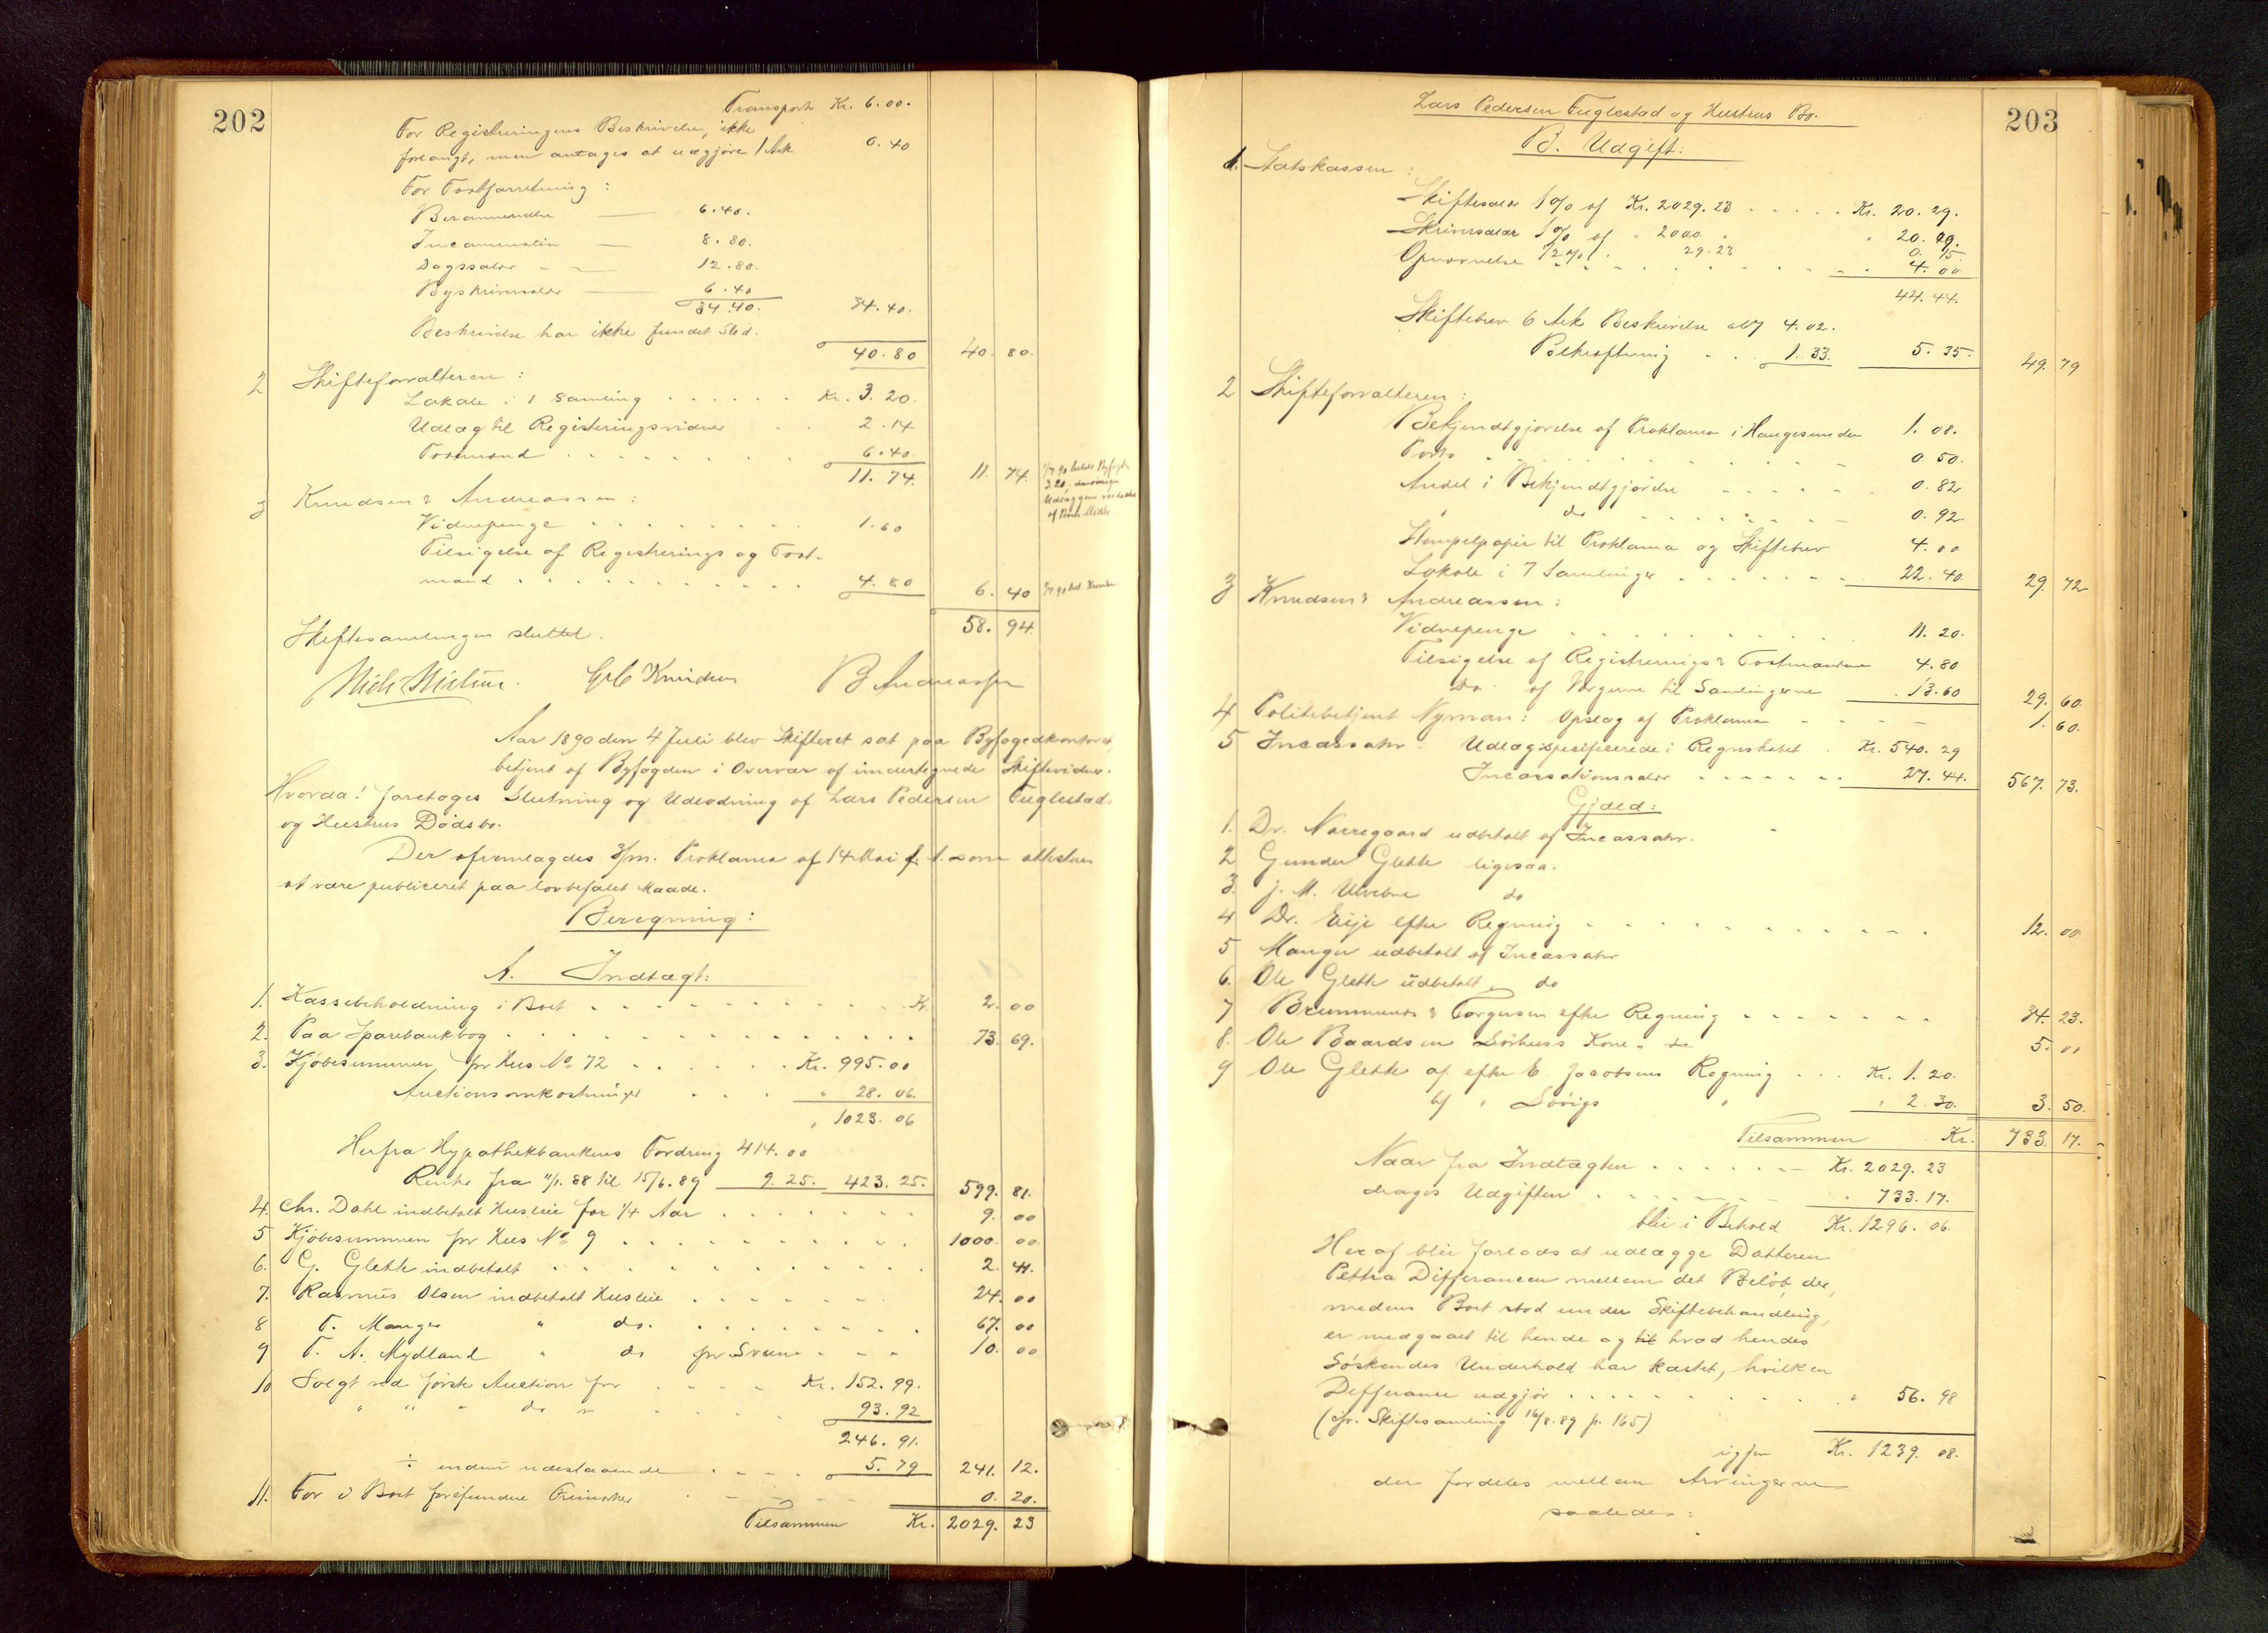 202
Transport Kr. 6.00.
For Registreringens Beskrivelse, ikke
forlangt, men antages at udgjøre 1 Ark 0.40
For Tostforretning:
Berammelse — 6.40.
Incamination — 8.80.
Dagssalær — 12.80.
Byskriversalær — 6.40
34.40. 34.40.
Beskrivelse har ikke fundet Sted.
40.80 40. 80.
2 Skifteforvalteren:
Lokale i 1 Samling . . . . . . Kr. 3.20.
Udlæg til Registeringsvidner . . 2.14
Formænd . . . . . . . . 6.40
11.74. 11. 74.
3 Knudsen & Andreassen:
Vidnepenge . . . . . . . . 1.60
Tilsigelse af Registrerings og Tost-
mænd . . . . . . . . . . . 4.80 6. 40
58. 94.
Skiftesamlingen sluttet.
Niels Nielsen. Knudsen B Andreassen
Aar 1890 den 4 Juli blev Skifteret sat paa Byfogedkontoret,
betjent af Byfogden i Overvær af undertegnede Skiftevidner.
Hvorda! foretoges Slutning og Udlodning af Lars Pedersen Fuglestads
og Hustrus Dødsbo.
Der fremlagdes 3/m. Proklama af 14 Mai f. A. som attesteres
at være publiceret paa lovbefalet Maade.
Beregning:
A. Indtægt:
1. Kassebeholdning i Boet . . . . . . . . Kr. 2. 00
2. Paa Sparebankbog . . . . . . . . . . 73. 69.
3. Kjøbesummen for Hus No 72 . . . . . Kr. 995.00
Auctionsomkostninger . . . . " 28.06.
" 1023.06
Herfra Hypothekbankens Fordring 414.00
Rente fra 11/1.88 til 15/6.89 9.25. 423.25. 599. 81.
4. Chr. Dahl indbetalt Husleie for 1/4 Aar . . . . . . . 9. 00
5 Kjøbesummen for Hus No 9 . . . . . . . . . 1000. 00.
6. G. Glette indbetalt . . . . . . . . . . . 2. 41.
7. Rasmus Olsen indbetalt Husleie . . . . . . 24. 00
8 T. Manger " do. . . . . . . . . 67. 00
9 T. A. Mydland " do for Svene . . . 10. 00
10 Solgt ved første Auction for . . . . Kr. 152.99.
" " " do " . . . . . 93.92
246.91.
÷ endnu udestaaende . . . . 5.79 241. 12.
11. For i Boet forefundne Frimærker . . . . . 0. 20.
Tilsammen Kr. 2029. 23
203
Lars Pedersen Fuglestad og Hustrus Bo.
B. Udgift:
1. Statskassen:
Skiftesalær 1% af Kr. 2029.23 . . . . . Kr. 20.29.
Skriversalær 1% af " 2000 " " 20.00.
1/2% " 29.23 0.15
Opnævnelse . . . . . . . . . . . 4.00
44.44.
Skiftebrev 6 Ark Beskrivelse a 67 4.02.
Bekræftning . . . 1.33. 5.35. 49. 79
2 Skifteforvalteren:
Bekjendtgjørelse af Proklama i Haugesunderen 1.08.
Porto . . . . . . . . . . . . . 0.50.
Andel i Bekjendtgjørelse . . . . . . 0.82
" do . . . . . . . . 0.92.
Stempelpapir til Proklama og Skiftebrev 4.00
Lokale i 7 Samlinger . . . . . . . 22.40. 29. 72
3 Knudsen & Andreassen:
Vidnepenge . . . . . . . . . . . 11.20.
Tilsigelse af Registrerings & Tostmænd 4.80
do af Vægerne til Samlingerne 13.60 29. 60.
4 Politibetjent Nyman: Opslag af Proklama . . . . 1. 60.
5 Incassator. Udlæg specificerede i Regnskabet . Kr. 540.29
Incassationssalær . . . . . . . 27.44. 567. 73.
Gjæld:
1. Dr. Nørregaard udbetalt af Incassator.
2 Gunder Glette ligesaa.
3. J. M. Ulvebne do
4 Dr. Eije efter Regning . . . . . . . . . . . 12. 00
5 Manger udbetalt af Incassator
6. Ole Glette udbetalt " do
7 Brummenæs & Torgersen efter Regning . . . . . . . 34. 23.
8. Ole Baardsen Sørhus's Kone . do 5. 00
9 Ole Glette af efter E. Jacobsens Regning . . . Kr. 1.20.
af " Lovigs " " 2.30. 3. 50.
Tilsammen Kr. 733. 17.
Naar fra Indtægten . . . . . . Kr. 2029.23
drages Udgiften . . . . . . " 733.17.
blir i Behold Kr. 1296.06.
Heraf blir forlods at udlægge Datteren
Petra Differancen mellem det Beløb, der,
medens Boet stod under Skiftebehandling,
er medgaaet til hende og til hvad hendes
Søskendes Underhold har kostet, hvilken
Differance udgjør . . . . . . . . . . " 56.98
(cfr. Skiftesamling 16/8.89 p. 165)
igjen Kr. 1239.08.
der fordeles mellem Arvingerne
saaledes: